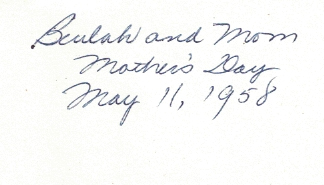 Beulah and Mom
Mother's Day
May 11, 1958